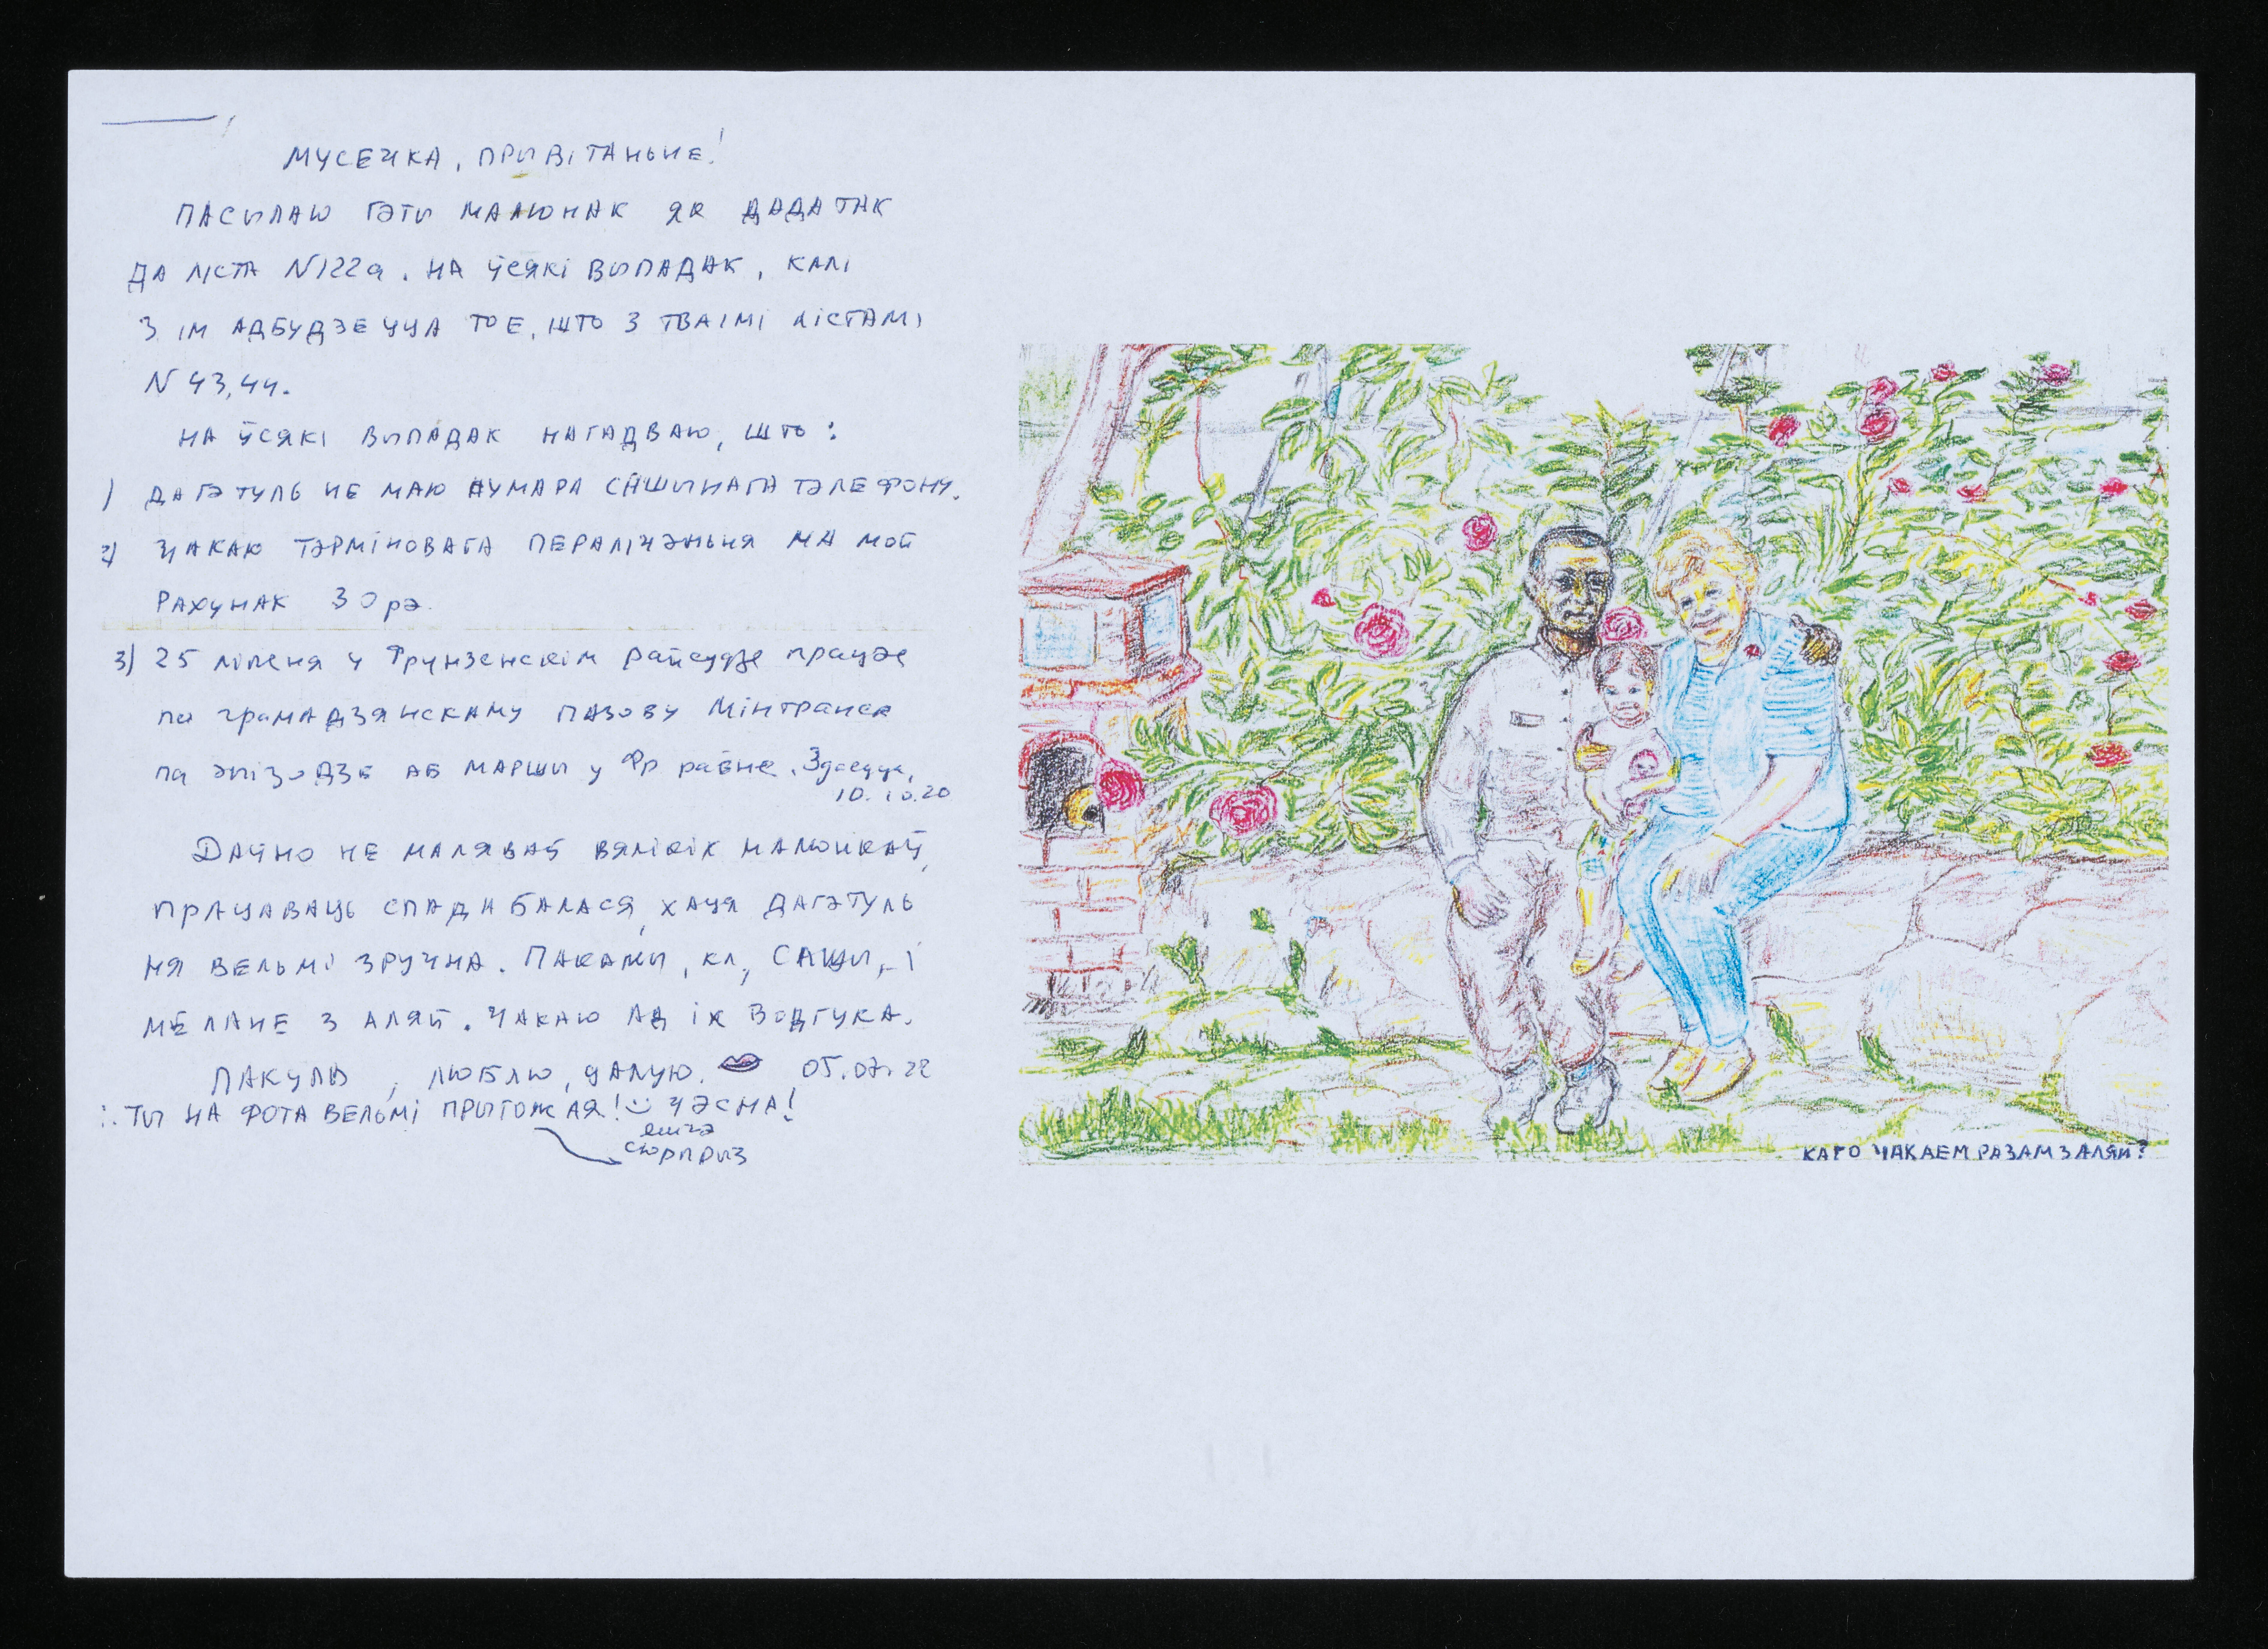 МУСЕЧКА, ПРЫВІТАНЬНЕ!
ПАСЫЛАЮ ГЭТЫ МАЛЮНАК ЯК ДАДАТАК
ДА ЛІСТА N122а. НА ЎСЯКІ ВЫПАДАК, КАЛІ
З ІМ АДБУДЗЕЦЦА ТОЕ, ШТО З ТВАІМІ ЛІСТАМІ
N 43,44.
НА ЎСЯКІ ВЫПАДАК НАГАДВАЮ, ШТО:
1) ДАГЭТУЛЬ НЕ МАЮ НУМАРА САШЫНАГА ТЭЛЕФОНУ.
2) ЧАКАЮ ТЭРМІНОВАГА ПЕРАЛІЧЭНЬНЯ НА МОЙ
РАХУНАК 30 рэ.
3) 25 ліпеня у Фрунзенскім райсудзе працэс
па грамадзянскаму пазову Мінтранса
па эпізодзе аб маршы у Фр раёне. Здаецца,
10.10.20
ДАЎНО НЕ МАЛЯВАЎ ВЯЛІКІХ МАЛЮНКАЎ,
ПРАЦАВАЦЬ СПАДАБАЛАСЯ, ХАЦЯ ДАГЭТУЛЬ
НЯ ВЕЛЬМІ ЗРУЧНА. ПАКАЖЫ, КЛ, САШЫ, І
МЕЛАНЕ З АЛЯЙ. ЧАКАЮ АД ІХ ВОДГУКА.
ПАКУЛЬ, ЛЮБЛЮ, ЦАЛУЮ. 05.07.22
ТЫ НА ФОТА ВЕЛЬМІ ПРЫГОЖАЯ! ЧЭСНА!
яшчэ
СЮРПРЫЗ
КАГО ЧАКАЕМ РАЗАМ З АЛЯЙ?